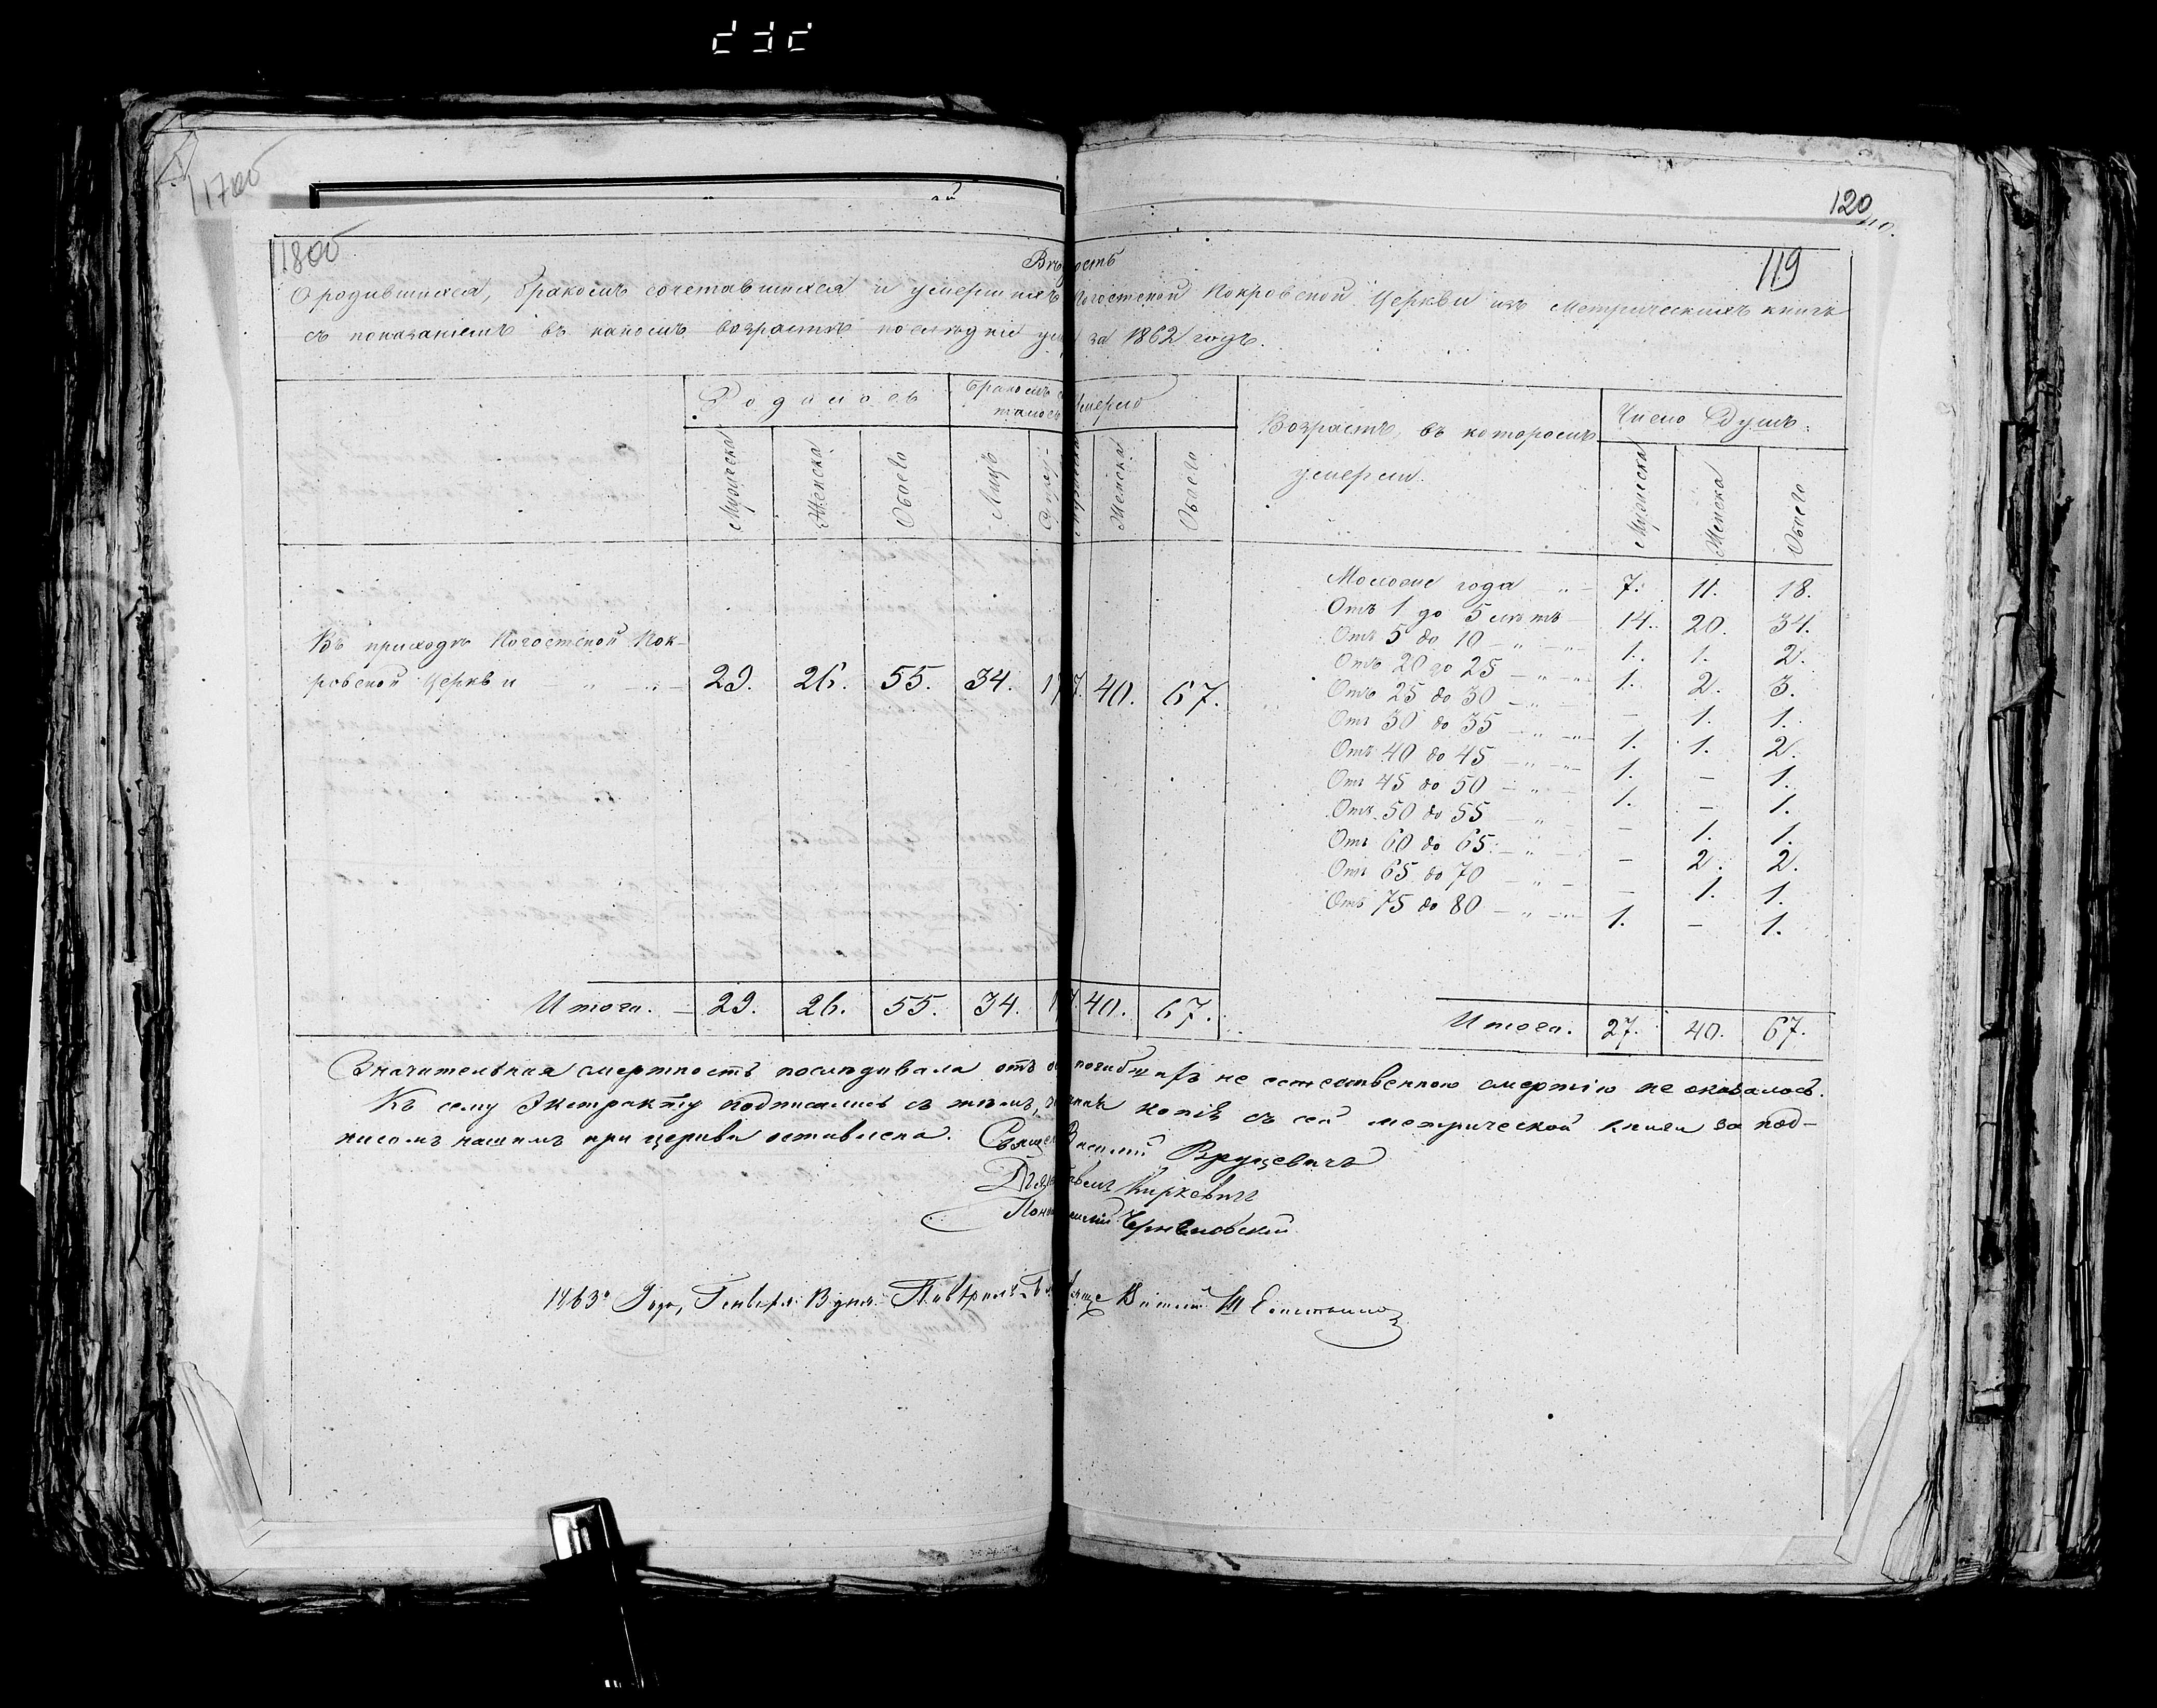 120
119
118об
117об
Вѣдомость
О родившихся, бракомъ сочетавшихся и умершихъ Погостской Покровской Церкви изъ Метрическихъ книгъ
съ показаніемъ въ какомъ возрастѣ послѣдніе за 1862 годъ.
Родилось
Бракомъ
Умерло
Возрастъ, въ которомъ
умерли.
Число Душъ.
Мужеска
Женска
Обоего
Лицъ
Женска
Обоего
Мужеска
Женска
Обоего
Въ приходѣ Погостской Пок-
ровской Церкви 29. 26. 55. 34. 17 7. 40. 67.
Моложе года 7. 11. 18.
Отъ 1 до 5 лѣтъ 14. 20. 34.
Отъ 5 до 10 1. 1. 2.
Отъ 20 до 25 1. 2. 3.
Отъ 25 до 30 – 1. 1.
Отъ 30 до 35 1. 1. 2.
Отъ 40 до 45 1. – 1.
Отъ 45 до 50 1. – 1.
Отъ 50 до 55 – 1. 1.
Отъ 60 до 65 – 2. 2.
Отъ 65 до 70 – 1. 1.
Отъ 75 до 80 1. – 1.
Итого. 29. 26. 55. 34. 40. 67.
Итого. 27. 40. 67.
Значительная смертность послѣдовала отъ не естественною смертію не оказалось.
Къ сему Экстракту подписались съ тѣмъ, копія съ сей метрической книги за под-
писомъ нашимъ при церкви оставлена. Василій Вруцевичъ
Киркевичъ
Чернвловскій
1863º Года, Генваря 13 дня